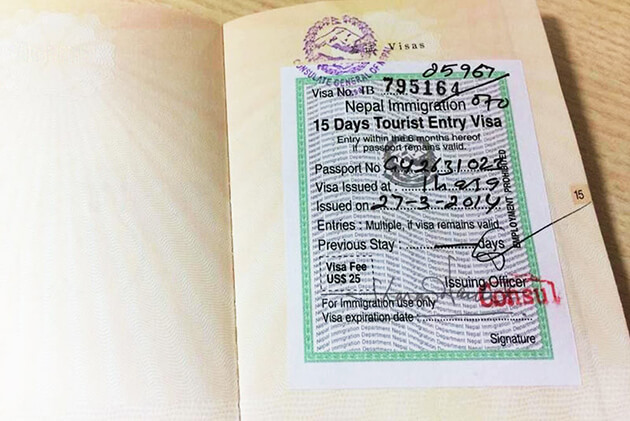 Visas
CONSULATE GENERAL OF NEPAL
85967
Visa No. 1B 795164
070
Nepal Immigration
15 Days Tourist Entry Visa
Entry within the 6 months hereof
if passport remains valid.
Passport No
Visa Issued at : Lhasa
Issued on 27-3-2014
Entries : Multiple, if visa remains valid.
Previous Stay : days
EMPLOYMENT PROHIBITED
15
Visa Fee
US$ 25
Issuing Officer
Consul
For Immigration use only
Visa expiration date :
Signature